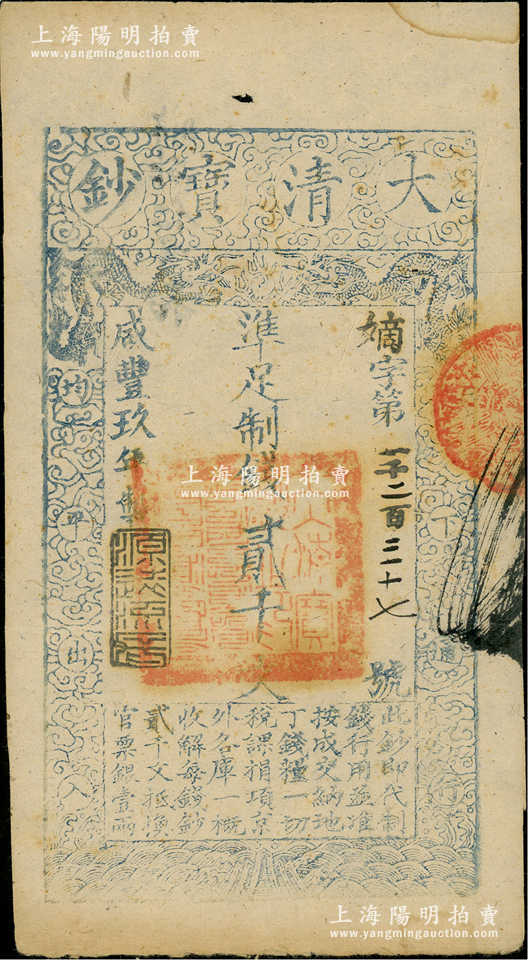 上海陽明拍賣
www.yangmingauction.com
大清寶鈔
嫡字第一千二百三十七號
準足制錢貳千文
咸豐玖年製
天下通行
均平出入
此鈔即代制
錢行用並准
按成交納地
丁錢糧一切
稅課捐項京
外各庫一概
收解每錢鈔
貳千文抵換
官票銀壹兩
上海陽明拍賣
www.yangmingauction.com
上海陽明拍賣
www.yangmingauction.com